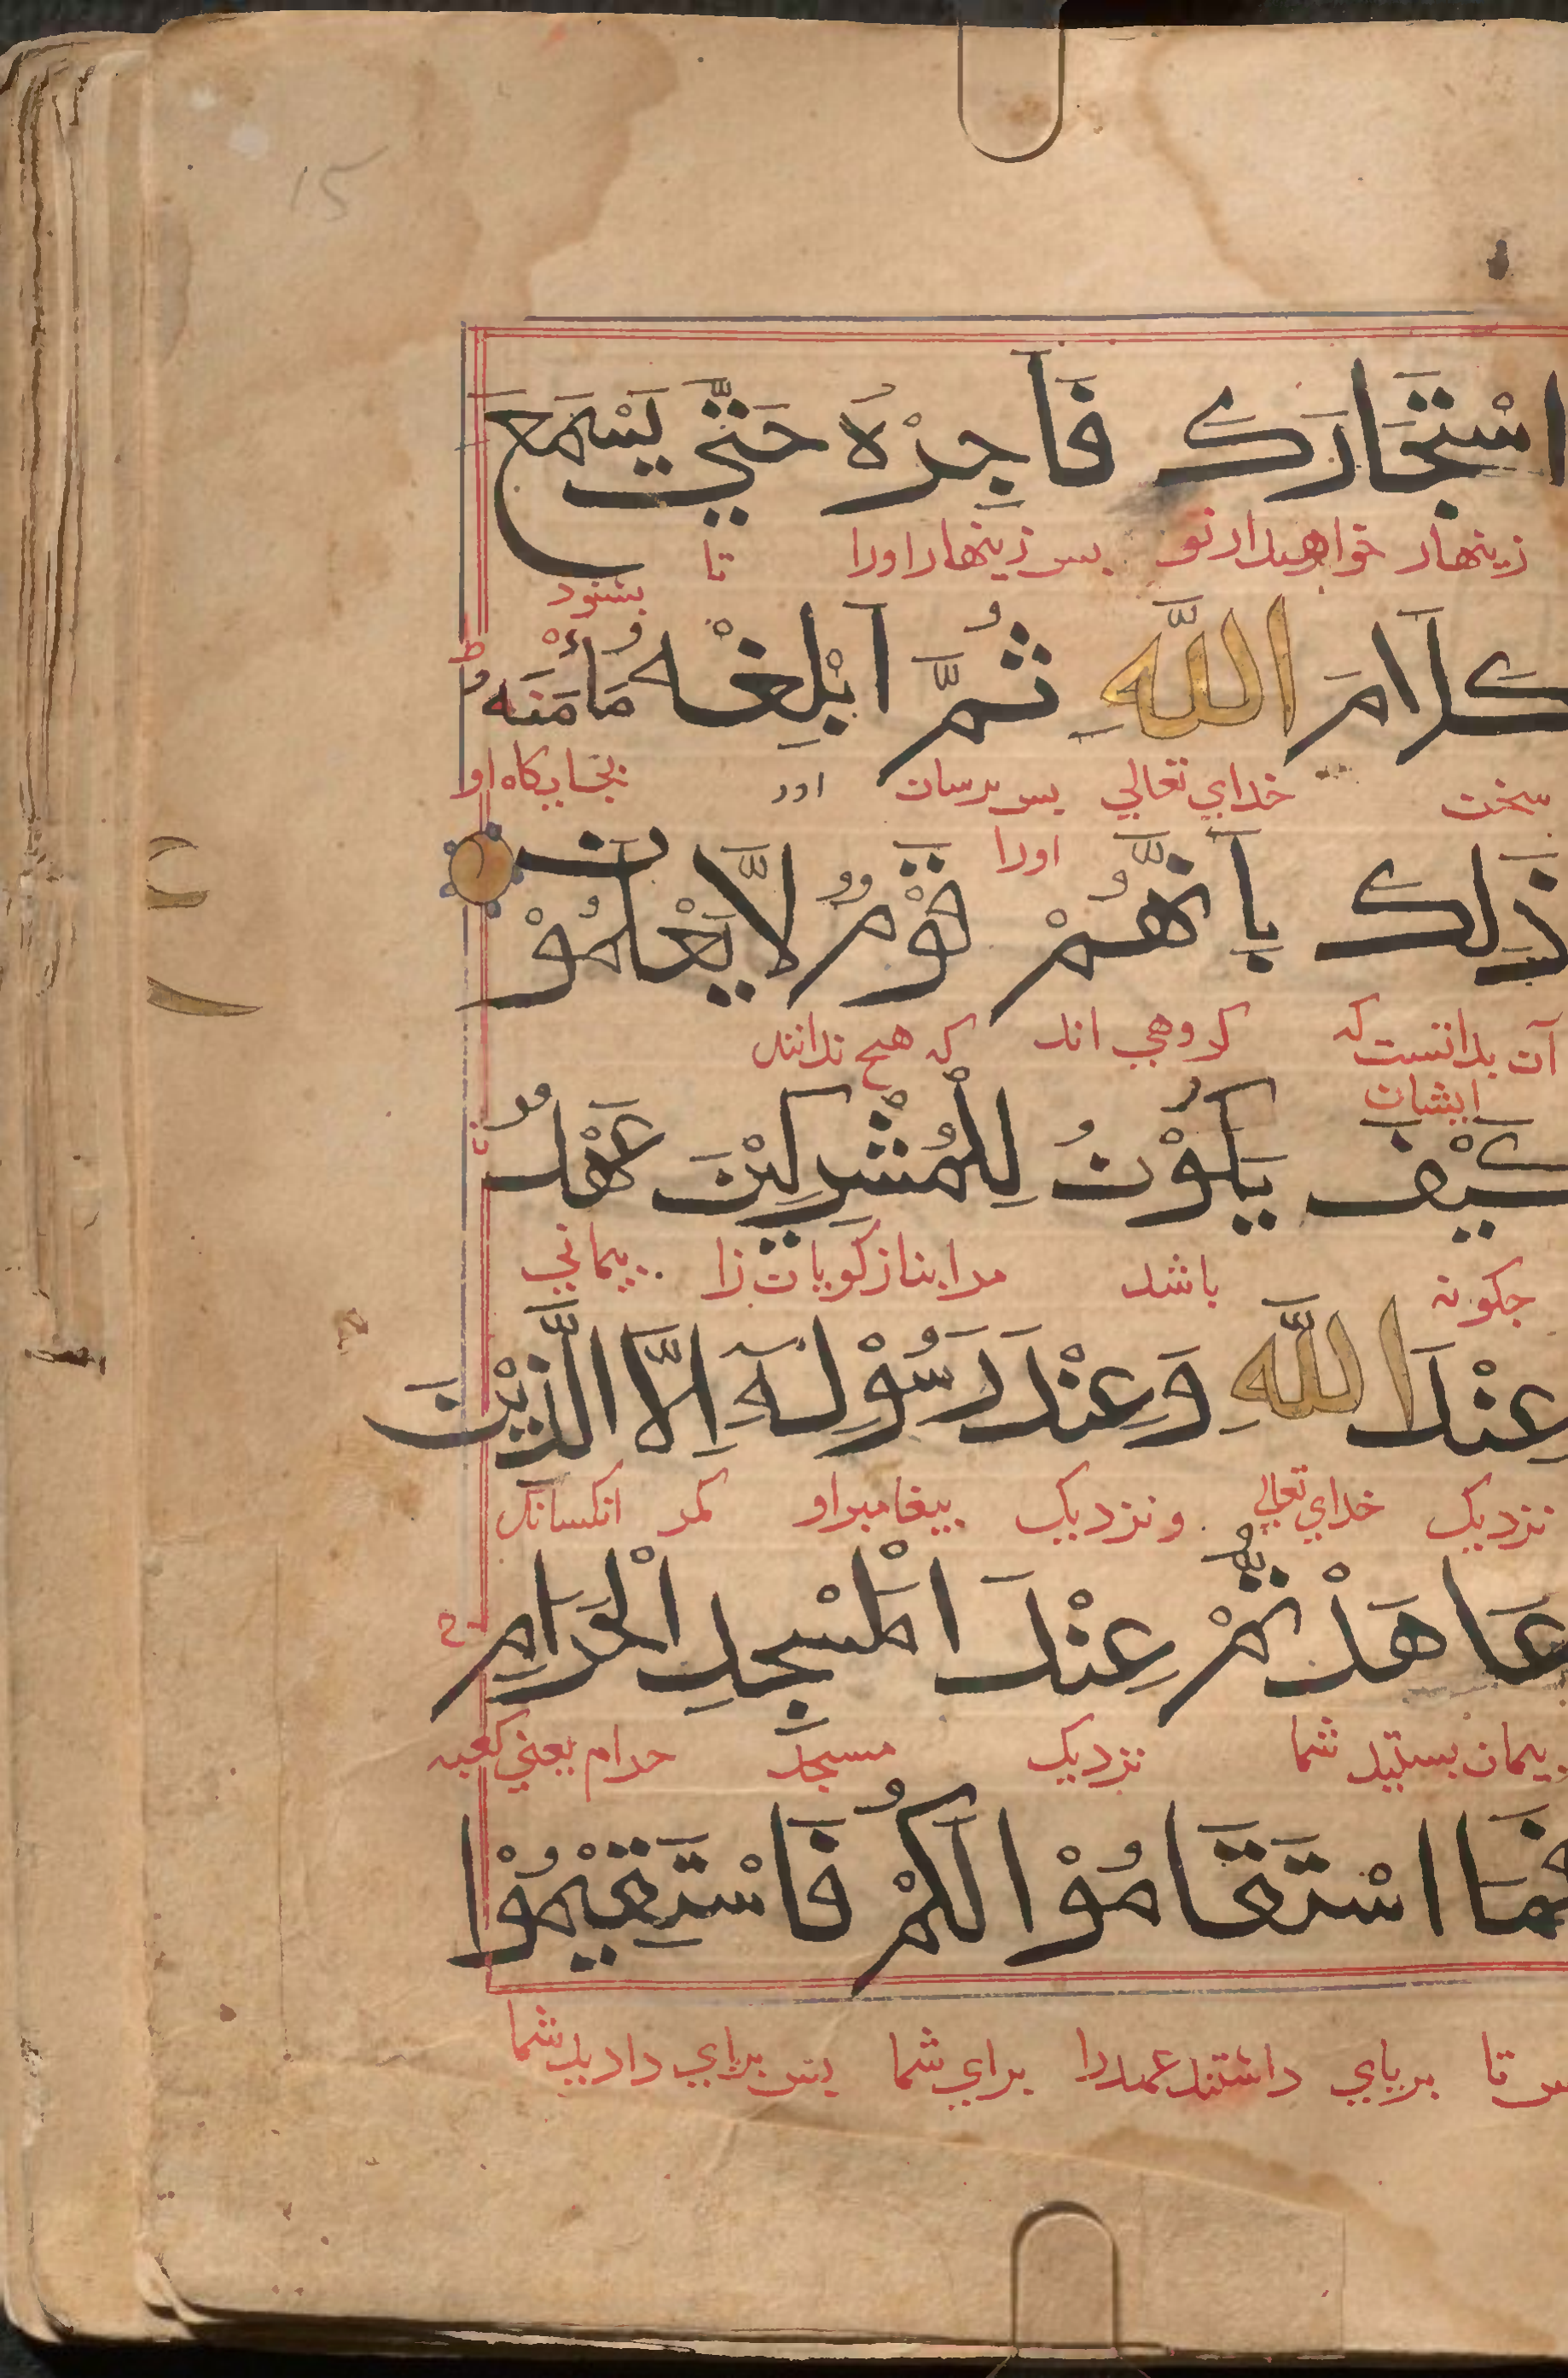 15
اسْتَجَارَكَ فَاَجِرْهُ حَتّٰي يَسْمَعَ
زينهار خواهد از تو بس زينهار اورا تا بشنود
كَلَامَ اللّٰهِ ثُمَّ اَبْلِغْهُ مَأْمَنَهُ ط
سخن خداي تعالي بس برسان اورا بجايكاه او
ذٰلِكَ بِاَنَّهُمْ قَوْمٌ لَّا يَعْلَمُوْنَ
آن بدانست كه ايشان كروهي اند كه هيچ ندانند
كَيْفَ يَكُوْنُ لِلْمُشْرِكِيْنَ عَهْدٌ
جكونه باشد مر انبازكويان را پيماني
عِنْدَ اللّٰهِ وَعِنْدَ رَسُوْلِهٖ اِلَّا الَّذِيْنَ
نزديك خداي تعالي ونزديك بيغامبر او مكر انكسانكه
عَاهَدْتُّمْ عِنْدَ الْمَسْجِدِ الْحَرَامِ ج
پيمان بستيد شما نزديك مسجد حرام يعني كعبه
فَمَا اسْتَقَامُوْا لَكُمْ فَاسْتَقِيْمُوْا
بس تا برپاي داشتند عهد را براي شما بس براي داريد شما